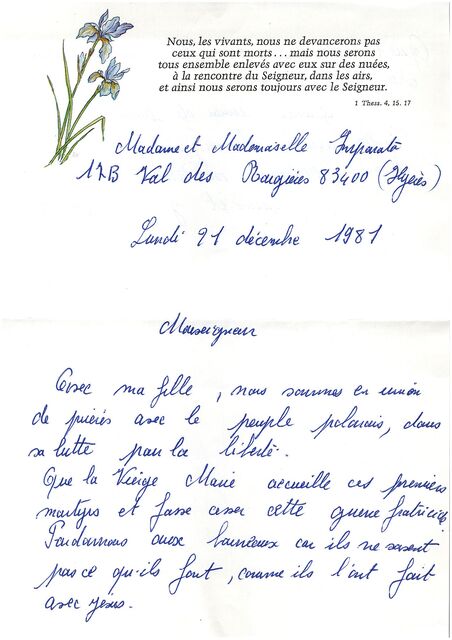 Nous, les vivants, nous ne devancerons pas
ceux qui sont morts... mais nous serons
tous ensemble enlevés avec eux sur des nuées,
à la rencontre du Seigneur, dans les airs,
et ainsi nous serons toujours avec le Seigneur.
1 Thess. 4, 15. 17
Madame et Mademoiselle Imparato
17B Val des Rougières 83400 (Hyères)
Lundi 21 décembre 1981
Monseigneur
Avec ma fille, nous sommes en union
de prières avec le peuple polonais, dans
sa lutte pour la liberté.
Que la Vierge Marie accueille ces premiers
martyrs et fasse cesser cette guerre fratricide
Pardonnons aux bourreaux car ils ne savent
pas ce qu'ils font, comme ils l'ont fait
avec Jésus.